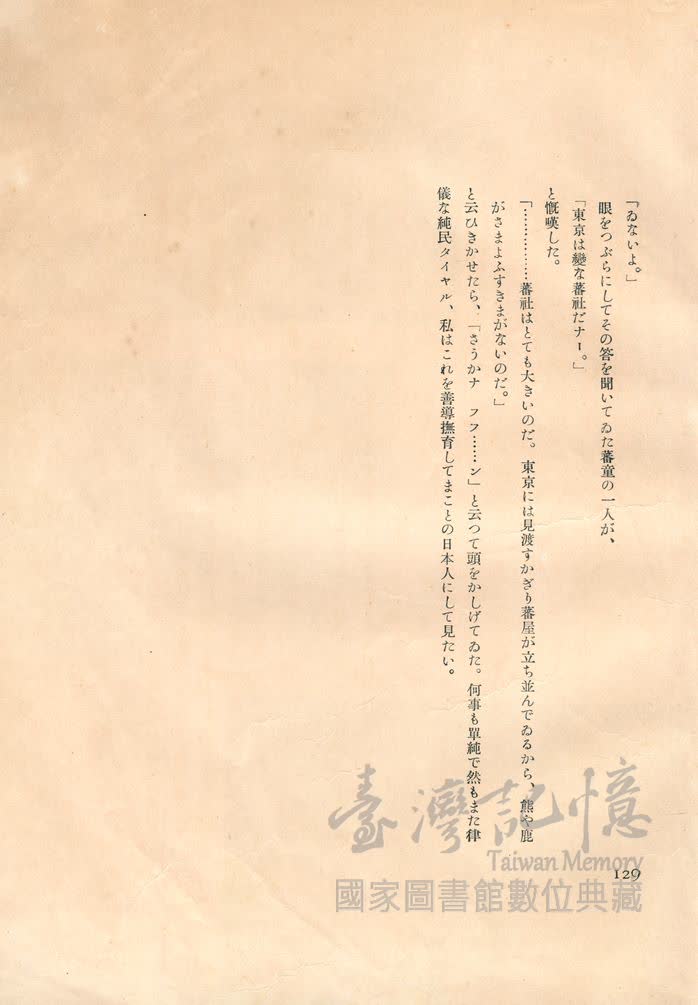 「ゐないよ。」
眼をつぶらにしてその答を聞いてゐた蕃童の一人が、
「東京は變な蕃社だナー。」
と慨嘆した。
「……………蕃社はとても大きいのだ。東京には見渡すかぎり蕃屋が立ち並んでゐるから、熊や鹿
がさまよふすきまがないのだ。」
と云ひきかせたら、「さうかナ　フフ……ン」と云つて頭をかしげてゐた。何事も單純で然もまた律
儀な純民タイヤル、私はこれを善導撫育してまことの日本人にして見たい。
129
臺灣記憶
Taiwan Memory
國家圖書館數位典藏